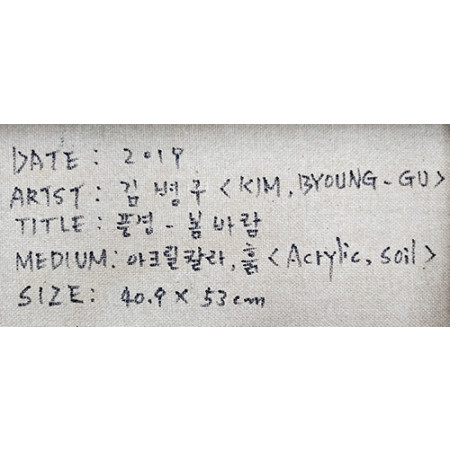 DATE : 2017
ARTST : 김병구 <KIM, BYOUNG-GU>
TITLE : 풍경 - 봄바람
MEDIUM : 아크릴칼라, 흙 <Acrylic, soil>
SIZE : 40.9 × 53 cm